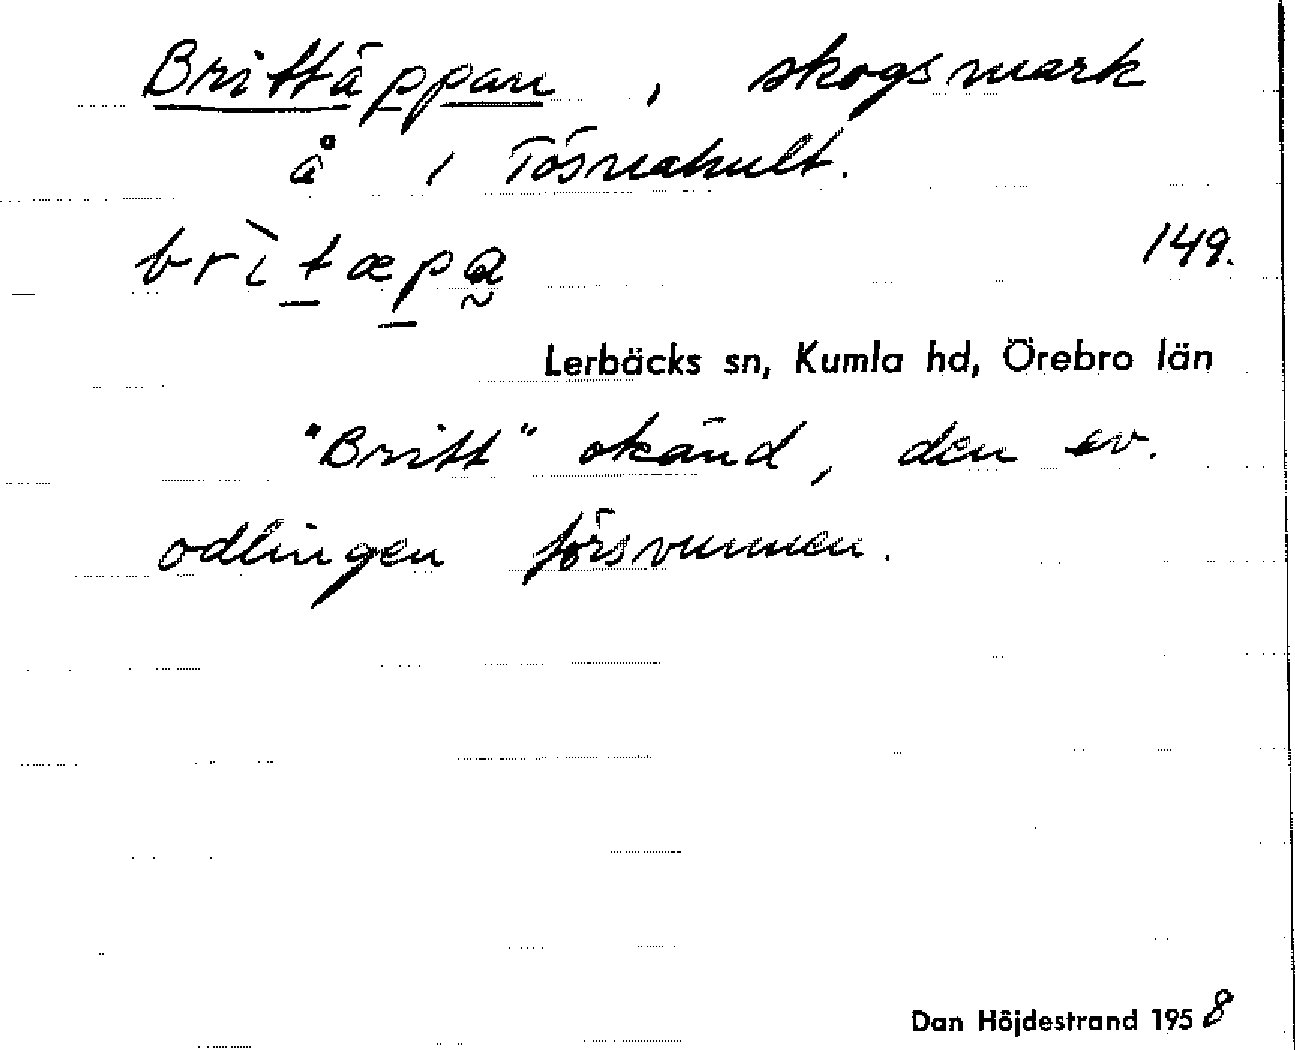 Brittäppan, skogsmark
å 1 Tösnahult.
brìtæpa
149.
Lerbäcks sn, Kumla hd, Örebro län
"Britt" okänd, den ev.
odlingen försvunnen.
Dan Höjdestrand 1958